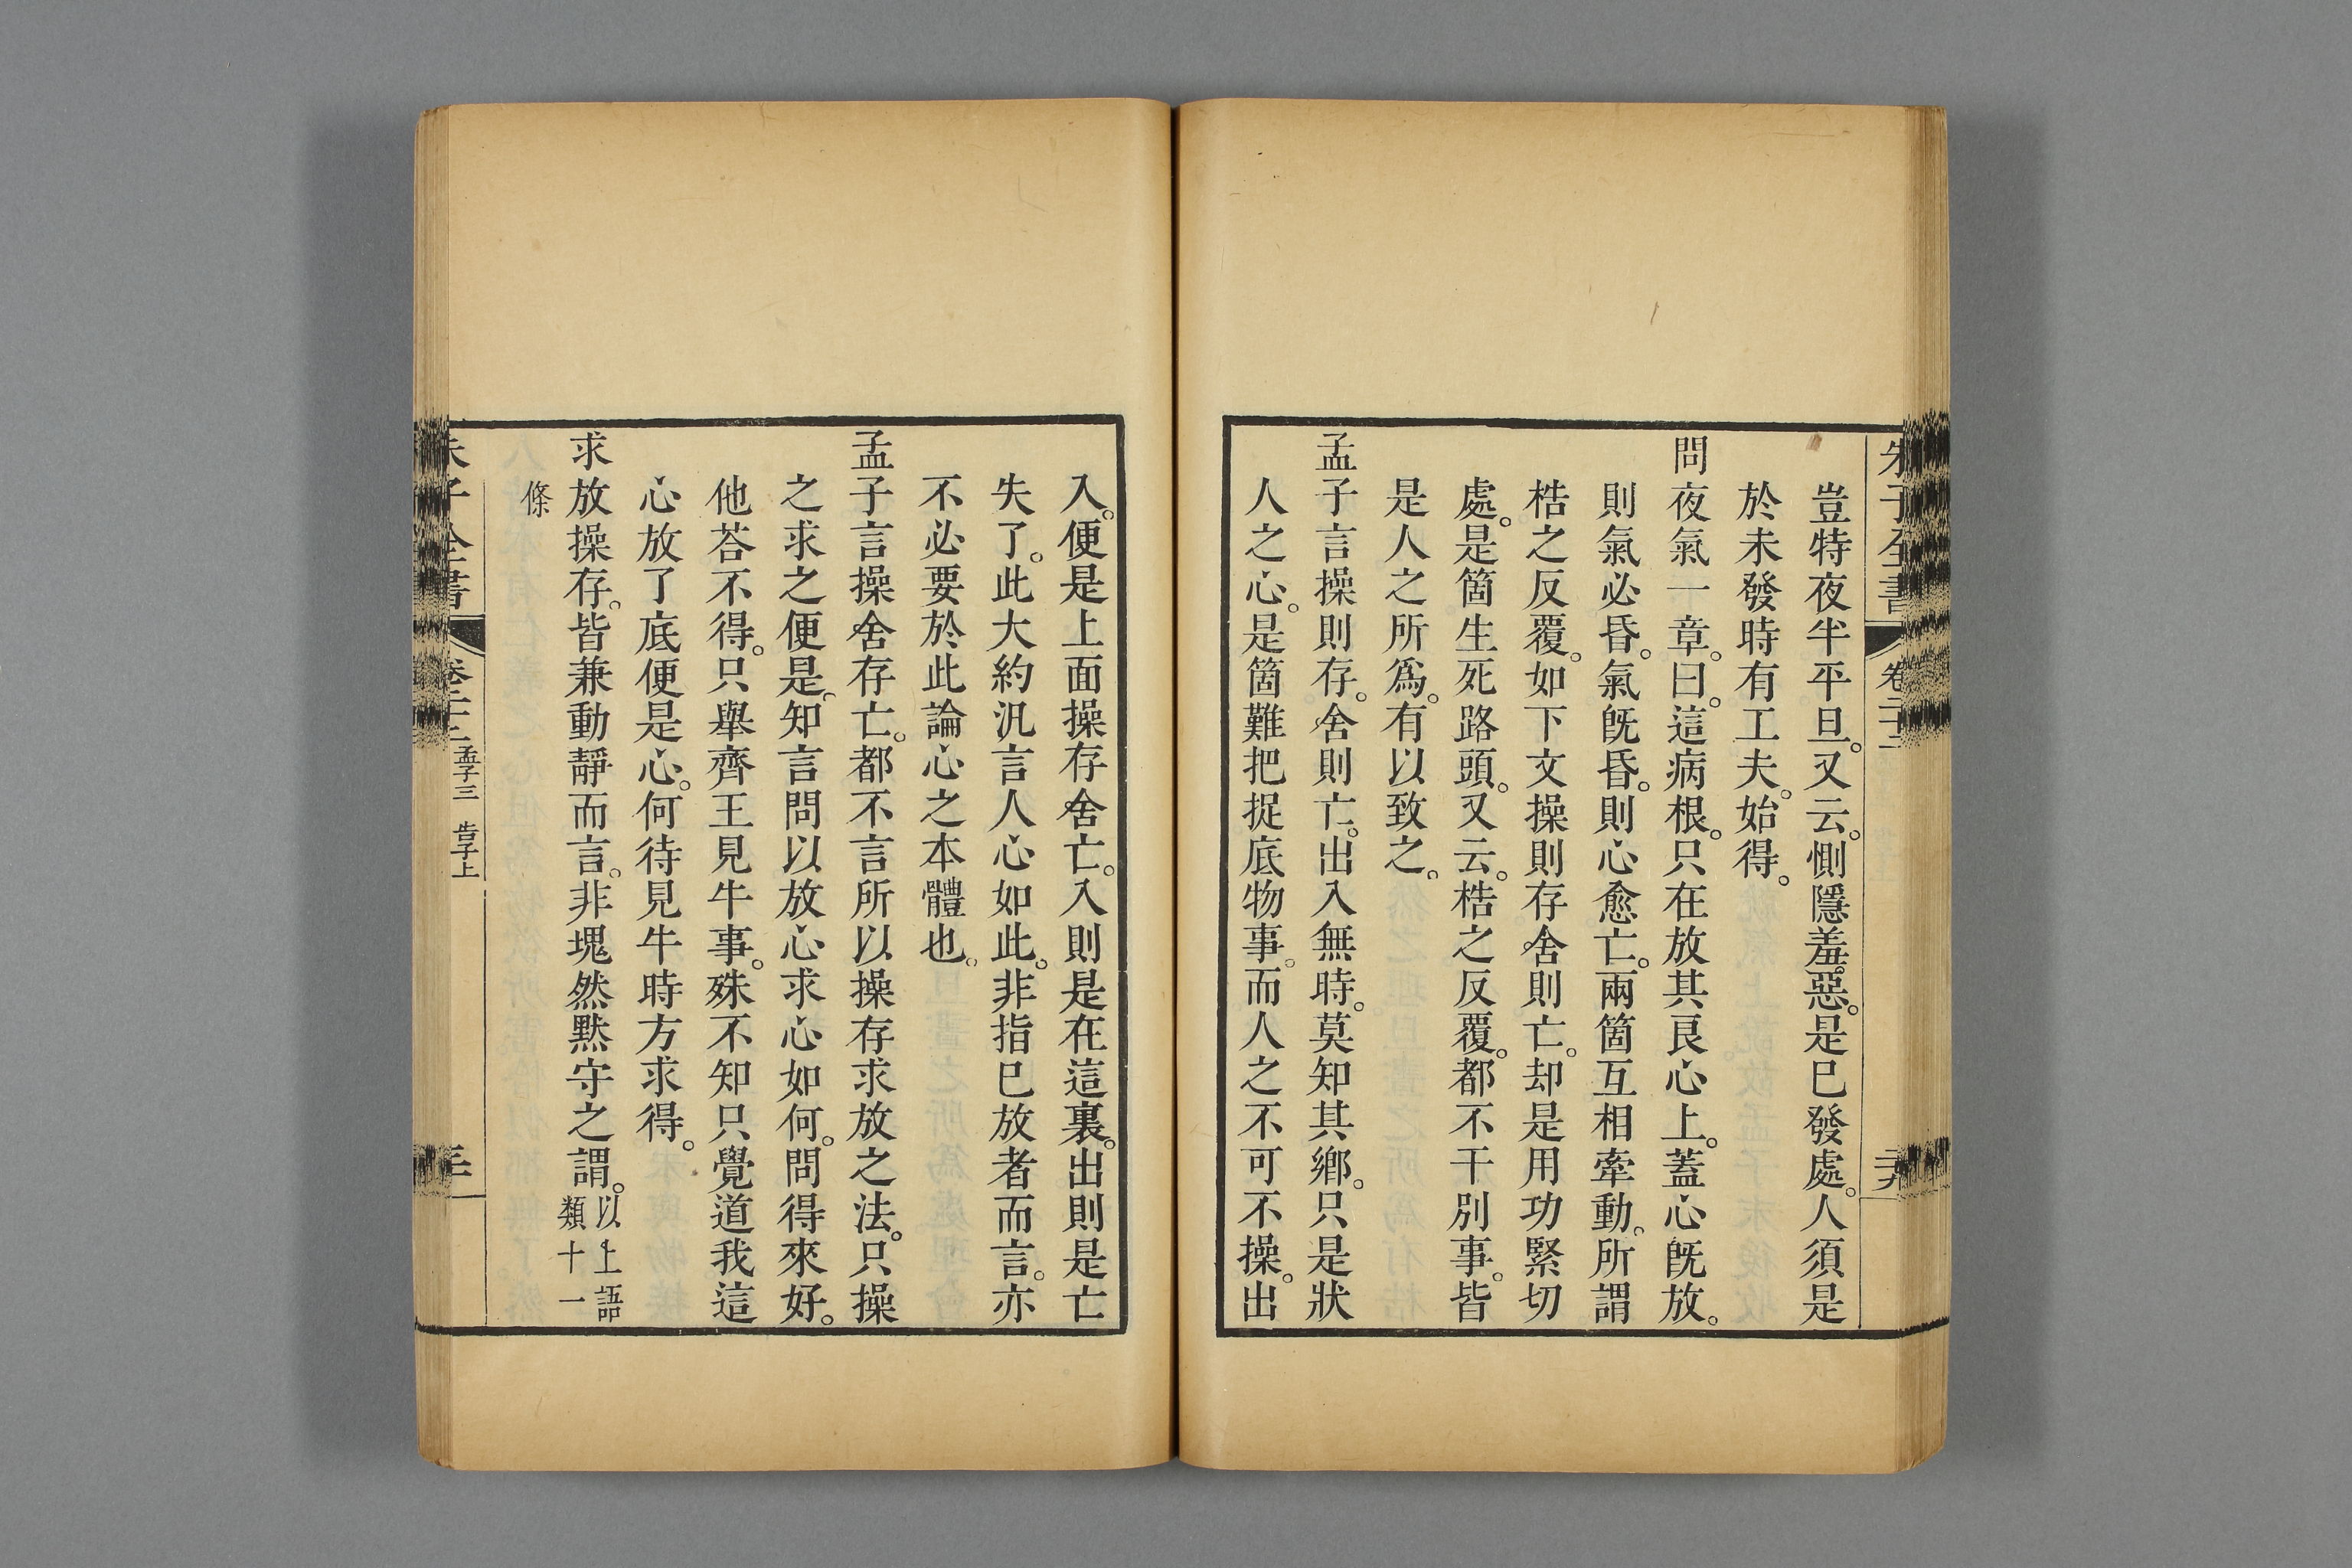 朱子全書 卷二十二
二十九
豈特夜半平旦。又云。惻隱羞惡。是已發處。人須是
於未發時有工夫。始得。
問夜氣一章。曰。這病根。只在放其良心上。蓋心旣放。
則氣必昏。氣旣昏。則心愈亡。兩箇互相牽動。所謂
梏之反覆。如下文操則存。舍則亡。却是用功緊切
處。是箇生死路頭。又云。梏之反覆。都不干別事。皆
是人之所爲。有以致之。
孟子言操則存。舍則亡。出入無時。莫知其鄕。只是狀
人之心。是箇難把捉底物事。而人之不可不操。出
入。便是上面操存舍亡。入則是在這裏。出則是亡
失了。此大約汎言人心如此。非指已放者而言。亦
不必要於此論心之本體也。
孟子言操舍存亡。都不言所以操存求放之法。只操
之求之便是。知言問以放心求心如何。問得來好。
他荅不得。只舉齊王見牛事。殊不知只覺道我這
心放了底便是心。何待見牛時方求得。
求放操存。皆兼動靜而言。非塊然默守之謂。以上語類十一
條
朱子全書 卷二十二 孟子三 告子上